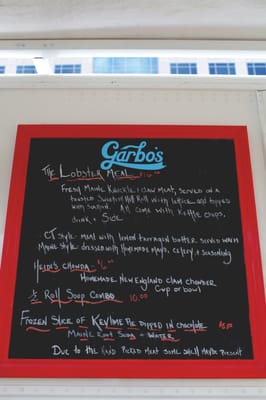 Garbo's
THE LOBSTER MEAL $16.00
FRESH MAINE KNUCKLE & CLAW MEAT, SERVED ON A
TOASTED ROLL WITH LETTUCE AND TOPPED
WITH ALL COME WITH KETTLE CHIPS,
DRINK & SIDE
CT STYLE - MEAT WITH LEMON TARRAGON BUTTER SERVED WARM
MAINE STYLE DRESSED WITH HOMEMADE MAYO, CELERY & SEASONING
HEIDI'S CHOWDA
HOMEMADE NEW ENGLAND CLAM CHOWDER
CUP OR BOWL
½ ROLL SOUP COMBO 10.00
FROZEN SLICE OF KEYLIME PIE DIPPED IN CHOCOLATE
MAINE ROOT SODA & WATER
DUE TO THE HAND PICKED MEAT SOME SHELL MAYBE PRESENT